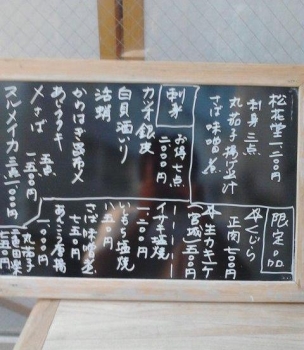 松花堂 一、二〇〇円
刺身 三点
丸茄子揚げ出汁
さば味噌煮
刺身
お得 七点
二〇〇〇円
カツオ銀皮
白貝酒いり
活蛸
かわはぎ昆布〆
あじタタキ
〆さば
五点
一五〇〇円
スルメイカ 三点 一、〇〇〇円
限定品
くじら
正肉 七〇〇円
生カキ一ケ
(宮城) 五〇〇円
イサキ塩焼
一、二〇〇円
いとより塩焼
八五〇円
さば味噌煮
七五〇円
一、〇〇〇円
丸茄子
七五〇円